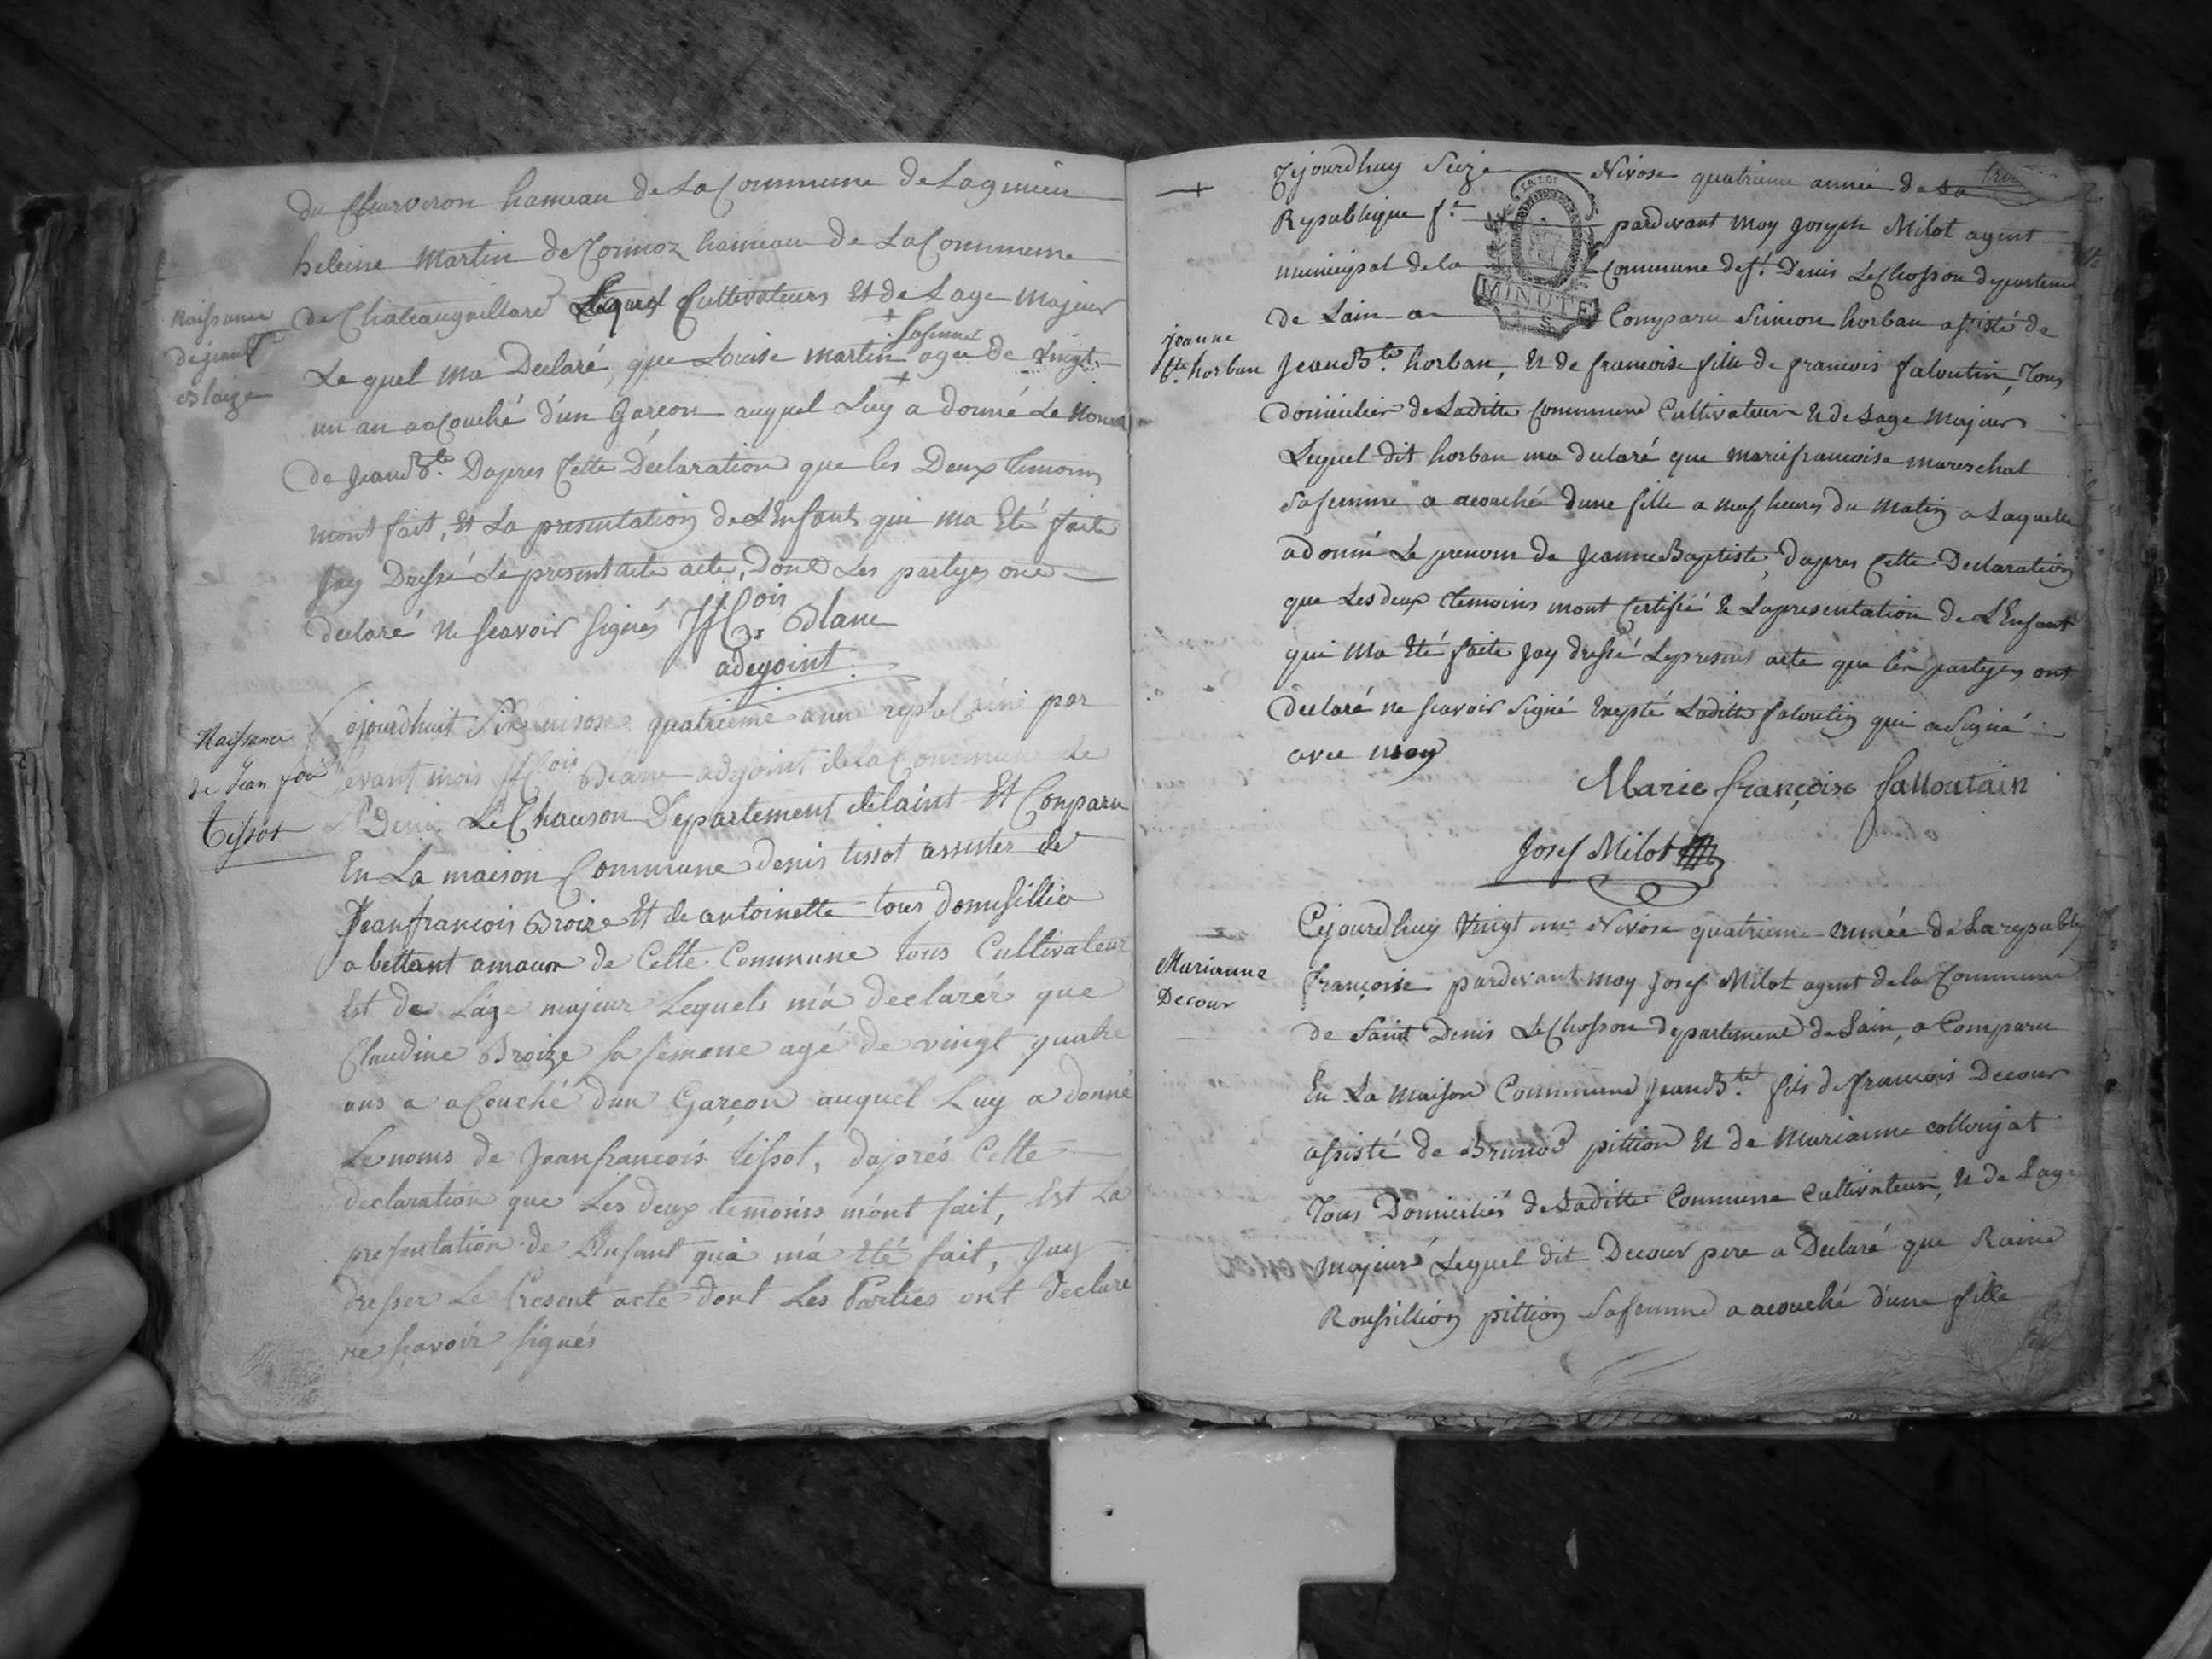 du Charveron hameau de La Commune de Lagnieu
heleine Martin de Cormoz hameau de La Commune
Naissance
de jean Bte
Blaize
de Chateaugaillard Lequel Cultivateurs Et de Lage Majeur
Lequel ma Declaré, que Louise Martin + Safemme + agee de vingt
un an acouché d'un Garcon auquel Luy a donné Le Nom
de Jean Bte. Dapres Cette Declaration que les Deux temoins
mont fait, Et La presentation de L'Enfant qui ma Eté faite
Jay Dressé Le present acte acte, Dont Les partyes ont
declaré Ne Scavoir Signés
ois Blanc
adegoint
Naissance
de Jean foi
tissot
Cejourdhuit Six nivose quatrieme anné par
devant mois ois Blanc adgoint de la Commune de
St Denis Le Chauson Departement de laint Et Conparu
En La maison Commune denis tissot assister de
Jean francois Broize Et de antoinette tous domisillier
a bettant amaun de Cette Commune tous Cultivateur
Et de L'age majeur Lequels m'a declarér que
Claudine Broize sa femme agé de vingt quatre
ans a acouché d'un Garcon auquel Luy a donné
Le noms de Jean francois tissot, daprés Cette
declaration que Les deux temoins m'ont fait, Est La
presentation de L'Enfant qui m'a Eté fait, Jay
dresser Le Present acte dont Les Parties ont declaré
ne scavoir signés
Cejourdhuy Seize Nivose quatrieme année de La
LA LOI
Republique f. pardevant moy Joseph Milot agent
municipal de la Commune de St. Denis Le Chosson departement
MINUTE
de Lain a Comparu Simeon horban assisté de
jeanne
bte horban
Jean Bte. horban, Et de francoise fille de francois faloutin, Tous
domicilier de Laditte Commune Cultivateur Et de Lage Majeur
Lequel dit horban ma declaré que marie francoise mareschal
Safemme a acouchée d'une fille a neuf heures du Matin a Laquelle
a donné Le prenom de Jeanne Baptiste, dapres Cette Declaration
que Les deux temoins mont Certifié & La presentation de L'Enfant
qui Ma Eté faite Jay dressé Le present acte que les partyes ont
declaré ne scavoir Signé Exepté Laditte faloutin qui a Signé
avec moy
Marie françoise falloutain
Josef Milot
Cejourdhuy Vingt une Nivose quatrieme année de La republiq
Marianne
Decour
françoise pardevant moy Josef Milot agent de la Commune
de Saint Denis Le Chosson departement de Lain, a Comparu
En La Maison Commune Jean Bte. fils de francois Decour
assisté de Bruno pittion Et de Marianne collonjat
Tous Domiciliés de Laditte Commune Cultivateur, Et de Lage
majeur Lequel dit Decour pere a Declaré que Raine
Roussillion pittion Safemme a acouché d'une fille